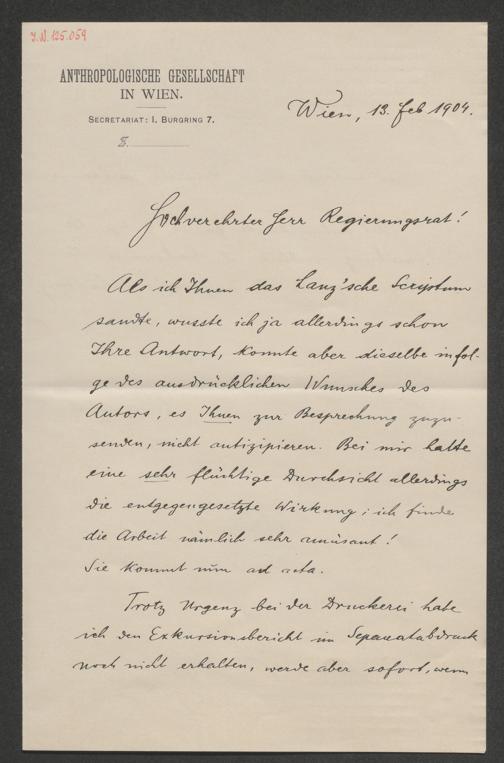 I.N. 125.059
ANTHROPOLOGISCHE GESELLSCHAFT
IN WIEN.
SECRETARIAT: I. BURGRING 7.
Wien, 13. Feb 1904.
Hochverehrter Herr Regierungsrat!
Als ich Ihnen das Lanz'sche Scriptum
sandte, wusste ich ja allerdings schon
Ihre Antwort, konnte aber dieselbe infol-
ge des ausdrücklichen Wunsches des
Autors, es Ihnen zur Besprechung zuzu-
senden, nicht antizipieren. Bei mir hatte
eine sehr flüchtige Durchsicht allerdings
die entgegengesetzte Wirkung; ich finde
die Arbeit nämlich sehr amüsant!
Sie kommt nun ad acta.
Trotz Urgenz bei der Druckerei habe
ich den Exkursionsbericht im Separatabdruck
noch nicht erhalten, werde aber sofort, wenn